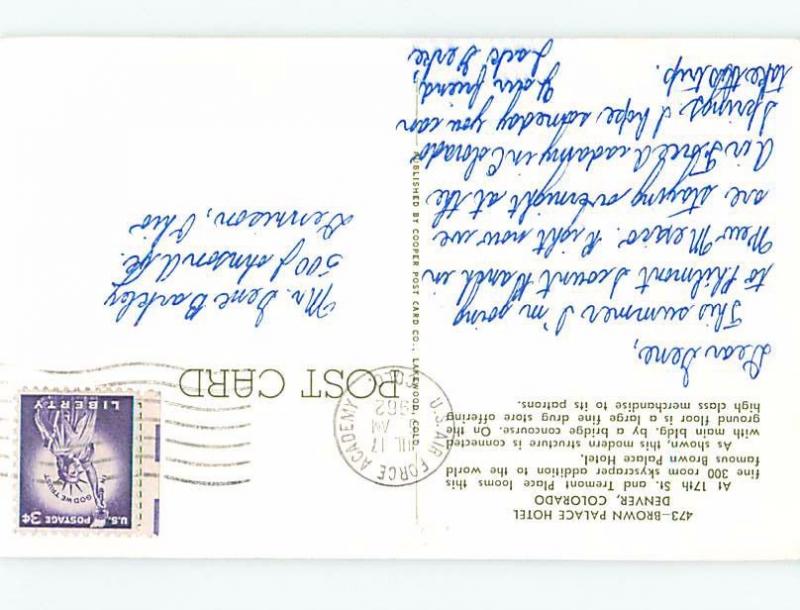 473—BROWN PALACE HOTEL
DENVER, COLORADO
At 17th St. and Tremont Place looms this
fine 300 room skyscraper addition to the world
famous Brown Palace Hotel.
As shown, this modern structure is connected
with main bldg. by a bridge concourse. On the
ground floor is a large fine drug store offering
high class merchandise to its patrons.
Dear Gene,
This summer I'm going
to Philmont Scount Ranch in
New Mexico. Right now we
are staying overnight at the
Air Force Acadamy in Colorado
Springs. I hope someday you can
take this trip.
Your friend,
Jack
PUBLISHED BY COOPER POST CARD CO., LAKEWOOD, COLO.
POST CARD
U.S. AIR FORCE ACADEMY
COLO.
JUL 17
AM
1962
U.S. POSTAGE 3¢
IN GOD WE TRUST
LIBERTY
Mr. Gene Barkley
500 Johnson Ave.
Dennison, Ohio